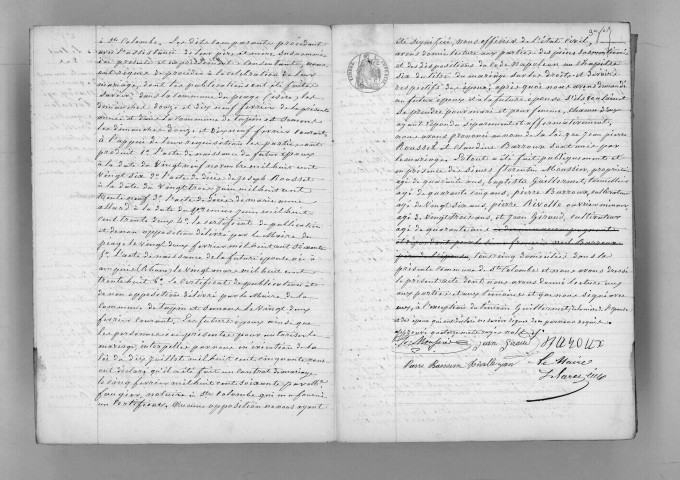 à Ste Colombe. Les dits comparants procédant
avec l'assistance de leur père et mère susnommés
ici présents et respectivement consentants, nous
ont requis de procéder à la célébration de leur
mariage, dont les publications ont été faites
savoir: dans la commune du péage, Isère, les
dimanches douze et dix neuf février de la présente
année et dans la commune de Tupin et Semons
les dimanches douze et dix neuf février courant,
à l'appui de leur réquisition les parties ont
produit 1o l'acte de naissance du futur époux
à la date du vingt neuf novembre mil huit cent
vingt six 2o l'acte de décès de Joseph Rousset
à la date du vingt trois juin mil huit cent
trente neuf 3o l'acte de décès de marie anne
allard à la date du premier juin mil huit
cent trente deux 4o le certificat de publication
et de non opposition délivré par le Maire du
péage le vingt deux février mil huit cent soixante
5o l'acte de naissance de la future épouse née à
ampuis Rhône, le vingt mars mil huit cent
trente huit 6o le certificat de publication et
de non opposition délivré par le Maire de la
commune de Tupin et Semons le vingt deux
février courant. Les futurs époux ainsi que
les personnes ici présentes pour autoriser le
mariage, interpellés par nous en exécution de la
loi du dix juillet mil huit cent cinquante nous
ont déclaré qu'il a été fait un contrat de mariage
le cinq février mil huit cent soixante par Mtre
notaire à Ste Colombe qui en a fourni
un certificat. Aucune opposition ne nous ayant
été signifiée, nous officier de l'état civil,
avons donné lecture aux parties des pièces
et des dispositions du code Napoléon au chapitre
six du titre du mariage sur les droits et devoirs
respectifs des époux, après quoi nous avons demandé
au futur époux et à la future épouse s'ils veulent
se prendre pour mari et pour femme, chacun d'eux
ayant répondu séparément et affirmativement,
nous avons prononcé au nom de la loi que Jean pierre
Rousset et Claudine Barroux sont unis par
le mariage. Le tout a été fait publiquement et
en présence des sieurs florentin Monssier, propriétaire
agé de quarante ans, baptiste Guillermet, tonnellier
agé de quarante cinq ans, pierre Barroux, cultivateur
agé de vingt six ans, pierre Rivolle ouvrier mineur
agé de vingt trois ans, et Jean Giraud, cultivateur
agé de quarante ans
domiciliés dans la
présente commune de Ste Colombe et nous avons dressé
le présent acte dont nous avons donné lecture aux
aux parties et aux témoins et que nous signé avec
eux, à l'exception du témoin Guillermet
jean giraud Baroux
Pierre Barroux Rivolle jean le Maire